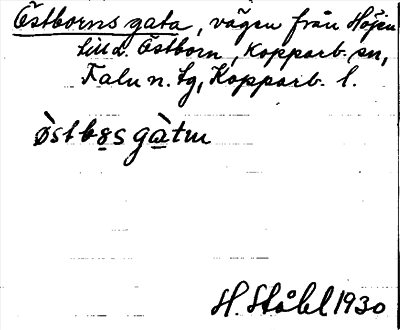 Östborns gata, vägen från Höjen
till d. Östborn, Kopparb. sn,
Falu n. tg, Kopparb. l.
ò̤stbo̤sgà̤tn
H. Ståhl 1930